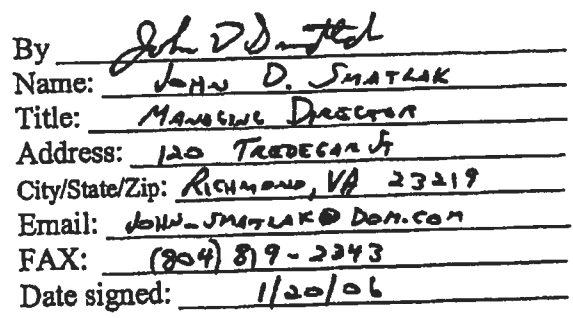 By John D Smatlak
Name: JOHN D. SMATLAK
Title: MANAGING DIRECTOR
Address: 120 TREDEGAR ST
City/State/Zip: RICHMOND, VA 23219
Email: JOHN_SMATLAK@DOM.COM
FAX: (804) 819-2243
Date signed: 1/20/06